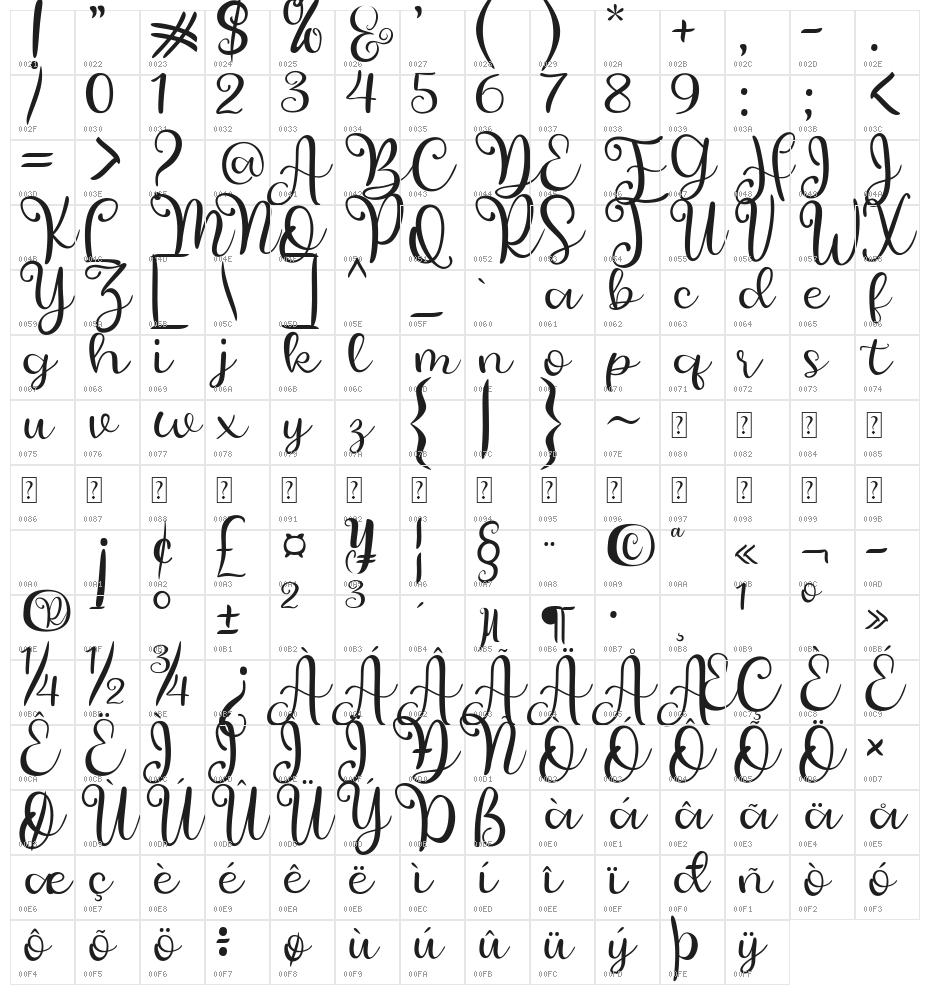 ! " # $ % & ' ( ) * + , - .
0021 0022 0023 0024 0025 0026 0027 0028 0029 002A 002B 002C 002D 002E
/ 0 1 2 3 4 5 6 7 8 9 : ; <
002F 0030 0031 0032 0033 0034 0035 0036 0037 0038 0039 003A 003B 003C
= > ? @ A B C D E F G H I J
003D 003E 003F 0040 0041 0042 0043 0044 0045 0046 0047 0048 0049 004A
K L M N O P Q R S T U V W X
004B 004C 004D 004E 004F 0050 0051 0052 0053 0054 0055 0056 0057 0058
Y Z [ \ ] ^ _ ` a b c d e f
0059 005A 005B 005C 005D 005E 005F 0060 0061 0062 0063 0064 0065 0066
g h i j k l m n o p q r s t
0067 0068 0069 006A 006B 006C 006D 006E 006F 0070 0071 0072 0073 0074
u v w x y z { | } ~ ? ? ? ?
0075 0076 0077 0078 0079 007A 007B 007C 007D 007E 0080 0082 0084 0085
? ? ? ? ? ? ? ? ? ? ? ? ? ?
0086 0087 0088 0089 0091 0092 0093 0094 0095 0096 0097 0098 0099 009B
¡ ¢ £ ¤ ¥ ¦ § ¨ © ª « ¬ -
00A0 00A1 00A2 00A3 00A4 00A5 00A6 00A7 00A8 00A9 00AA 00AB 00AC 00AD
® ¯ ° ± ² ³ ´ µ ¶ · ¸ ¹ º »
00AE 00AF 00B0 00B1 00B2 00B3 00B4 00B5 00B6 00B7 00B8 00B9 00BA 00BB
¼ ½ ¾ ¿ À Á Â Ã Ä Å Æ Ç È É
00BC 00BD 00BE 00BF 00C0 00C1 00C2 00C3 00C4 00C5 00C6 00C7 00C8 00C9
Ê Ë Ì Í Î Ï Ð Ñ Ò Ó Ô Õ Ö ×
00CA 00CB 00CC 00CD 00CE 00CF 00D0 00D1 00D2 00D3 00D4 00D5 00D6 00D7
Ø Ù Ú Û Ü Ý Þ ß à á â ã ä å
00D8 00D9 00DA 00DB 00DC 00DD 00DE 00DF 00E0 00E1 00E2 00E3 00E4 00E5
æ ç è é ê ë ì í î ï ð ñ ò ó
00E6 00E7 00E8 00E9 00EA 00EB 00EC 00ED 00EE 00EF 00F0 00F1 00F2 00F3
ô õ ö ÷ ø ù ú û ü ý þ ÿ
00F4 00F5 00F6 00F7 00F8 00F9 00FA 00FB 00FC 00FD 00FE 00FF